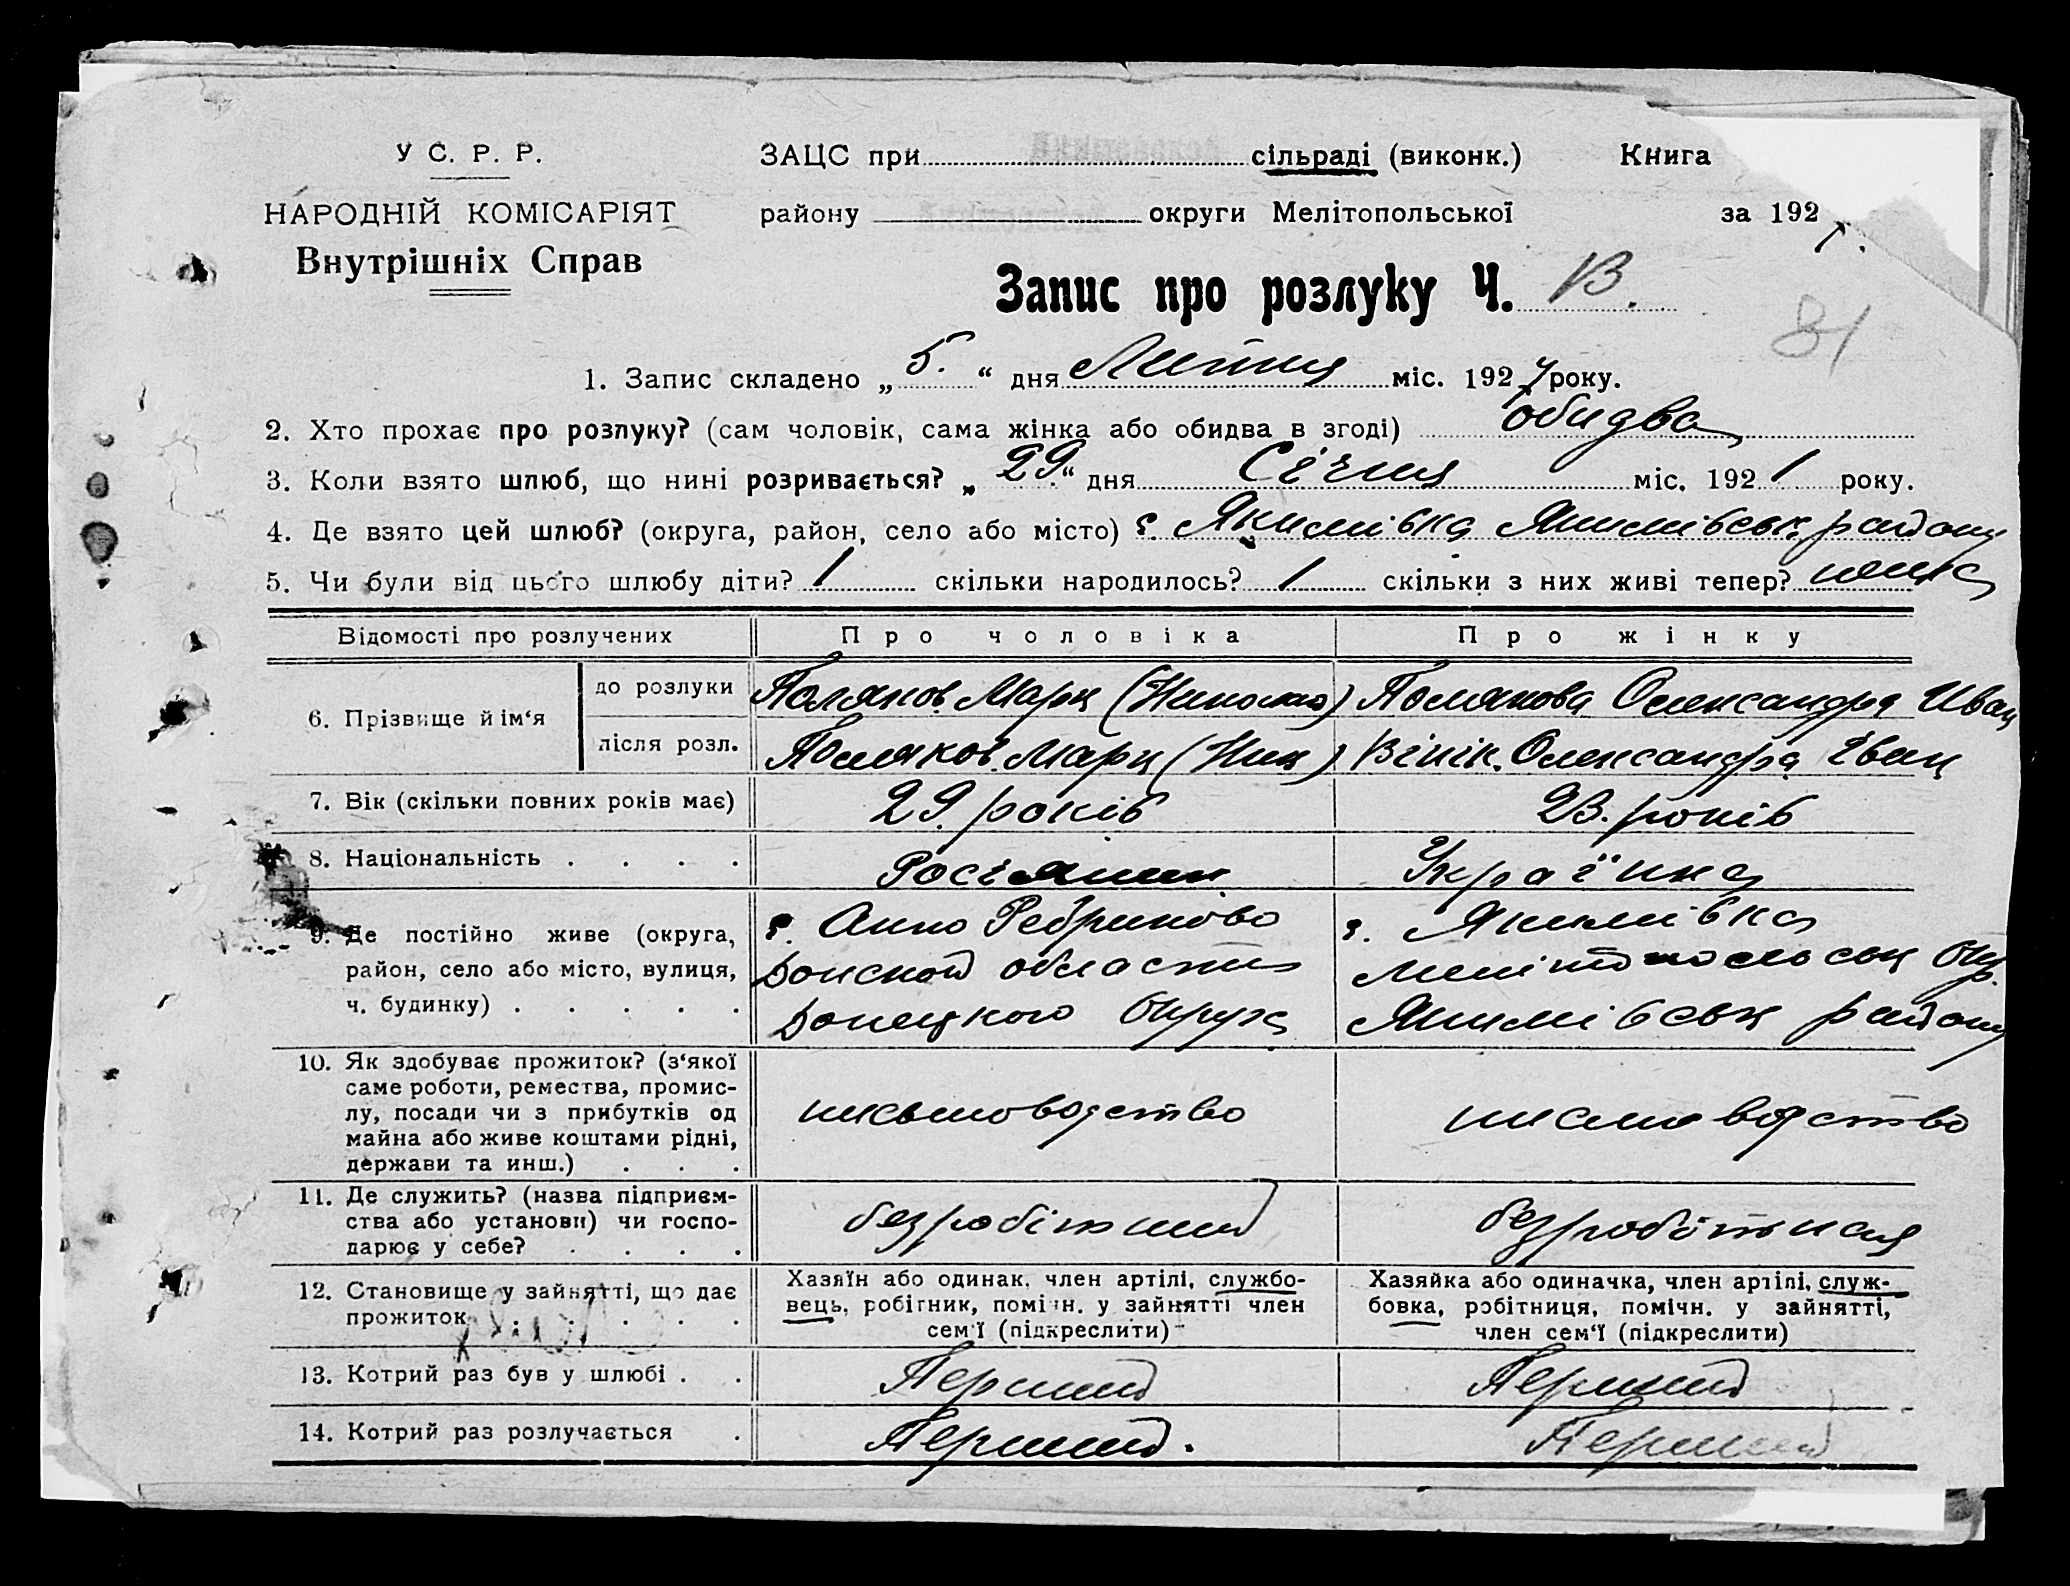 У С. Р. Р.
НАРОДНІЙ КОМІСАРІЯТ
Внутрішніх Справ
ЗАЦС при сільраді (виконк.) Книга
району округи Мелітопольської за 192
Запис про розлуку Ч. 13.
81
1. Запис складено „ 5. “ дня Липня міс. 192 року.
2. Хто прохає про розлуку? (сам чоловік, сама жінка або обидва в згоді) обидва
3. Коли взято шлюб, що нині розривається? „ 29 “ дня Січня міс. 192 1 року.
4. Де взято цей шлюб? (округа, район, село або місто) с. Якимівка Якимівськ. району
5. Чи були від цього шлюбу діти? 1 скільки народилось? 1 скільки з них живі тепер?
Відомості про розлучених Про чоловіка Про жінку
6. Прізвище й ім‘я
до розлуки Поляков Марк Полякова Олександра Иван
після розл. Поляков Марк (Ник) Вінік. Олександра Іван
7. Вік (скільки повних років має) 29 років 23. років
8. Національність . . . . Росіянин Українка
9. Де постійно живе (округа, район, село або місто, вулиця, ч. будинку) . . . . .
с. Анно Ребриково
Донской области
Донецкого Округа
с. Якимівка
Мелітопольськ Окр.
Якимівськ району
10. Як здобуває прожиток? (з‘якої саме роботи, ремества, промислу, посади чи з прибутків од майна або живе коштами рідні, держави та инш.) . . .
письмоводство
писмоводство
11. Де служить? (назва підприємства або установи) чи господарює у себе? . . . .
безробітний
безробітная
12. Становище у зайнятті, що дає прожиток . . . . .
Хазяїн або одинак, член артілі, службовець, робітник, помічн. у зайнятті член сем‘ї (підкреслити)
Хазяйка або одиначка, член артілі, службовка, робітниця, помічн. у зайнятті, член сем‘ї (підкреслити)
13. Котрий раз був у шлюбі . . Перший Перший
14. Котрий раз розлучається . Перший. Перший